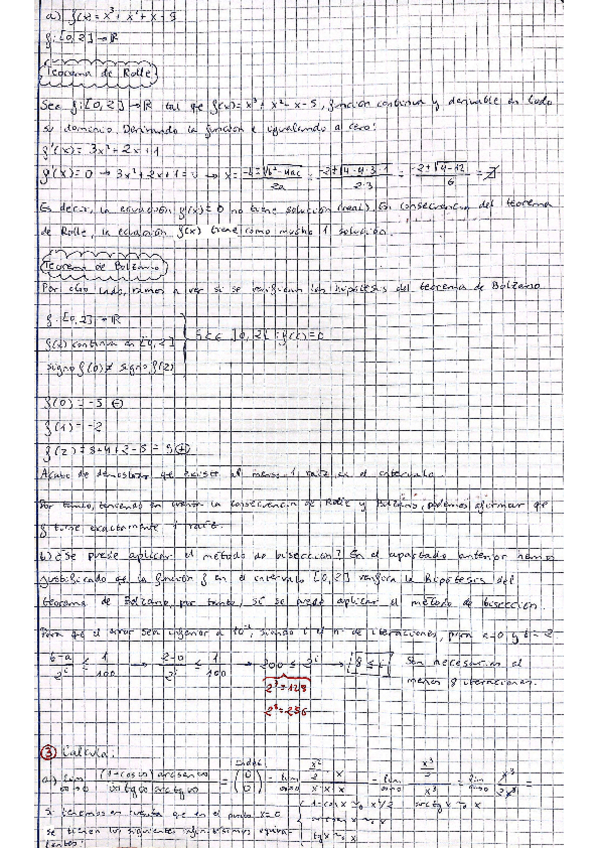 a) f(x) = x³ + x² + x - 5
f: [0, 2] → ℝ
Teorema de Rolle
Sea f: [0, 2] → ℝ tal que f(x) = x³ + x² + x - 5, función continua y derivable en todo
su dominio. Derivando la función e igualando a cero:
f'(x) = 3x² + 2x + 1
f'(x) = 0 → 3x² + 2x + 1 = 0 → x = (-b ± √(b² - 4ac))/2a = (-2 ± √(4 - 4·3·1))/2·3 = (-2 ± √(4 - 12))/6 = ∄
Es decir, la ecuación f'(x) = 0 no tiene solución (real). En consecuencia del teorema
de Rolle, la ecuación f(x) tiene como mucho 1 solución.
Teorema de Bolzano
Por otro lado, vamos a ver si se verifican las hipótesis del teorema de Bolzano
f: [0, 2] → ℝ
f(x) continua en [0, 2]
signo f(0) ≠ signo f(2)
∃ c ∈ ]0, 2[ : f(c) = 0
f(0) = -5 ⊖
f(1) = -2
f(2) = 8 + 4 + 2 - 5 = 9 ⊕
Acabo de demostrar que existe al menos 1 raíz en el intervalo.
Por tanto, teniendo en cuenta la consecuencia de Rolle y Bolzano, podemos afirmar que
f tiene exactamente 1 raíz
b) ¿Se puede aplicar el método de bisección? En el apartado anterior hemos
justificado que la función f en el intervalo [0, 2] verifica la hipótesis del
teorema de Bolzano, por tanto, sí se puede aplicar el método de bisección.
Para que el error sea inferior a siendo i el nº de iteraciones, para a=0 y b=2
(b-a)/2ⁱ ≤ 1/100 → (2-0)/2ⁱ ≤ 1/100 → 200 ≤ 2ⁱ → 8 ≤ i Son necesarias al
menos 8 iteraciones.
2⁷ = 128
2⁸ = 256
③ Calcula:
a) lim x→0 (1-cos x) arcsen x / x tg x arctg x = (0/0) = lim x→0 (x²/2 · x)/(x · x · x) = lim x→0 (x³/2)/x³ = lim x→0 x³/2x³ =
Si tenemos en cuenta que en el punto x=0
se tienen los siguientes infinitésimos equiva-
lentes:
1-cos x ≈ x²/2 arctg x ≈ x
arcsen x ≈ x
tg x ≈ x